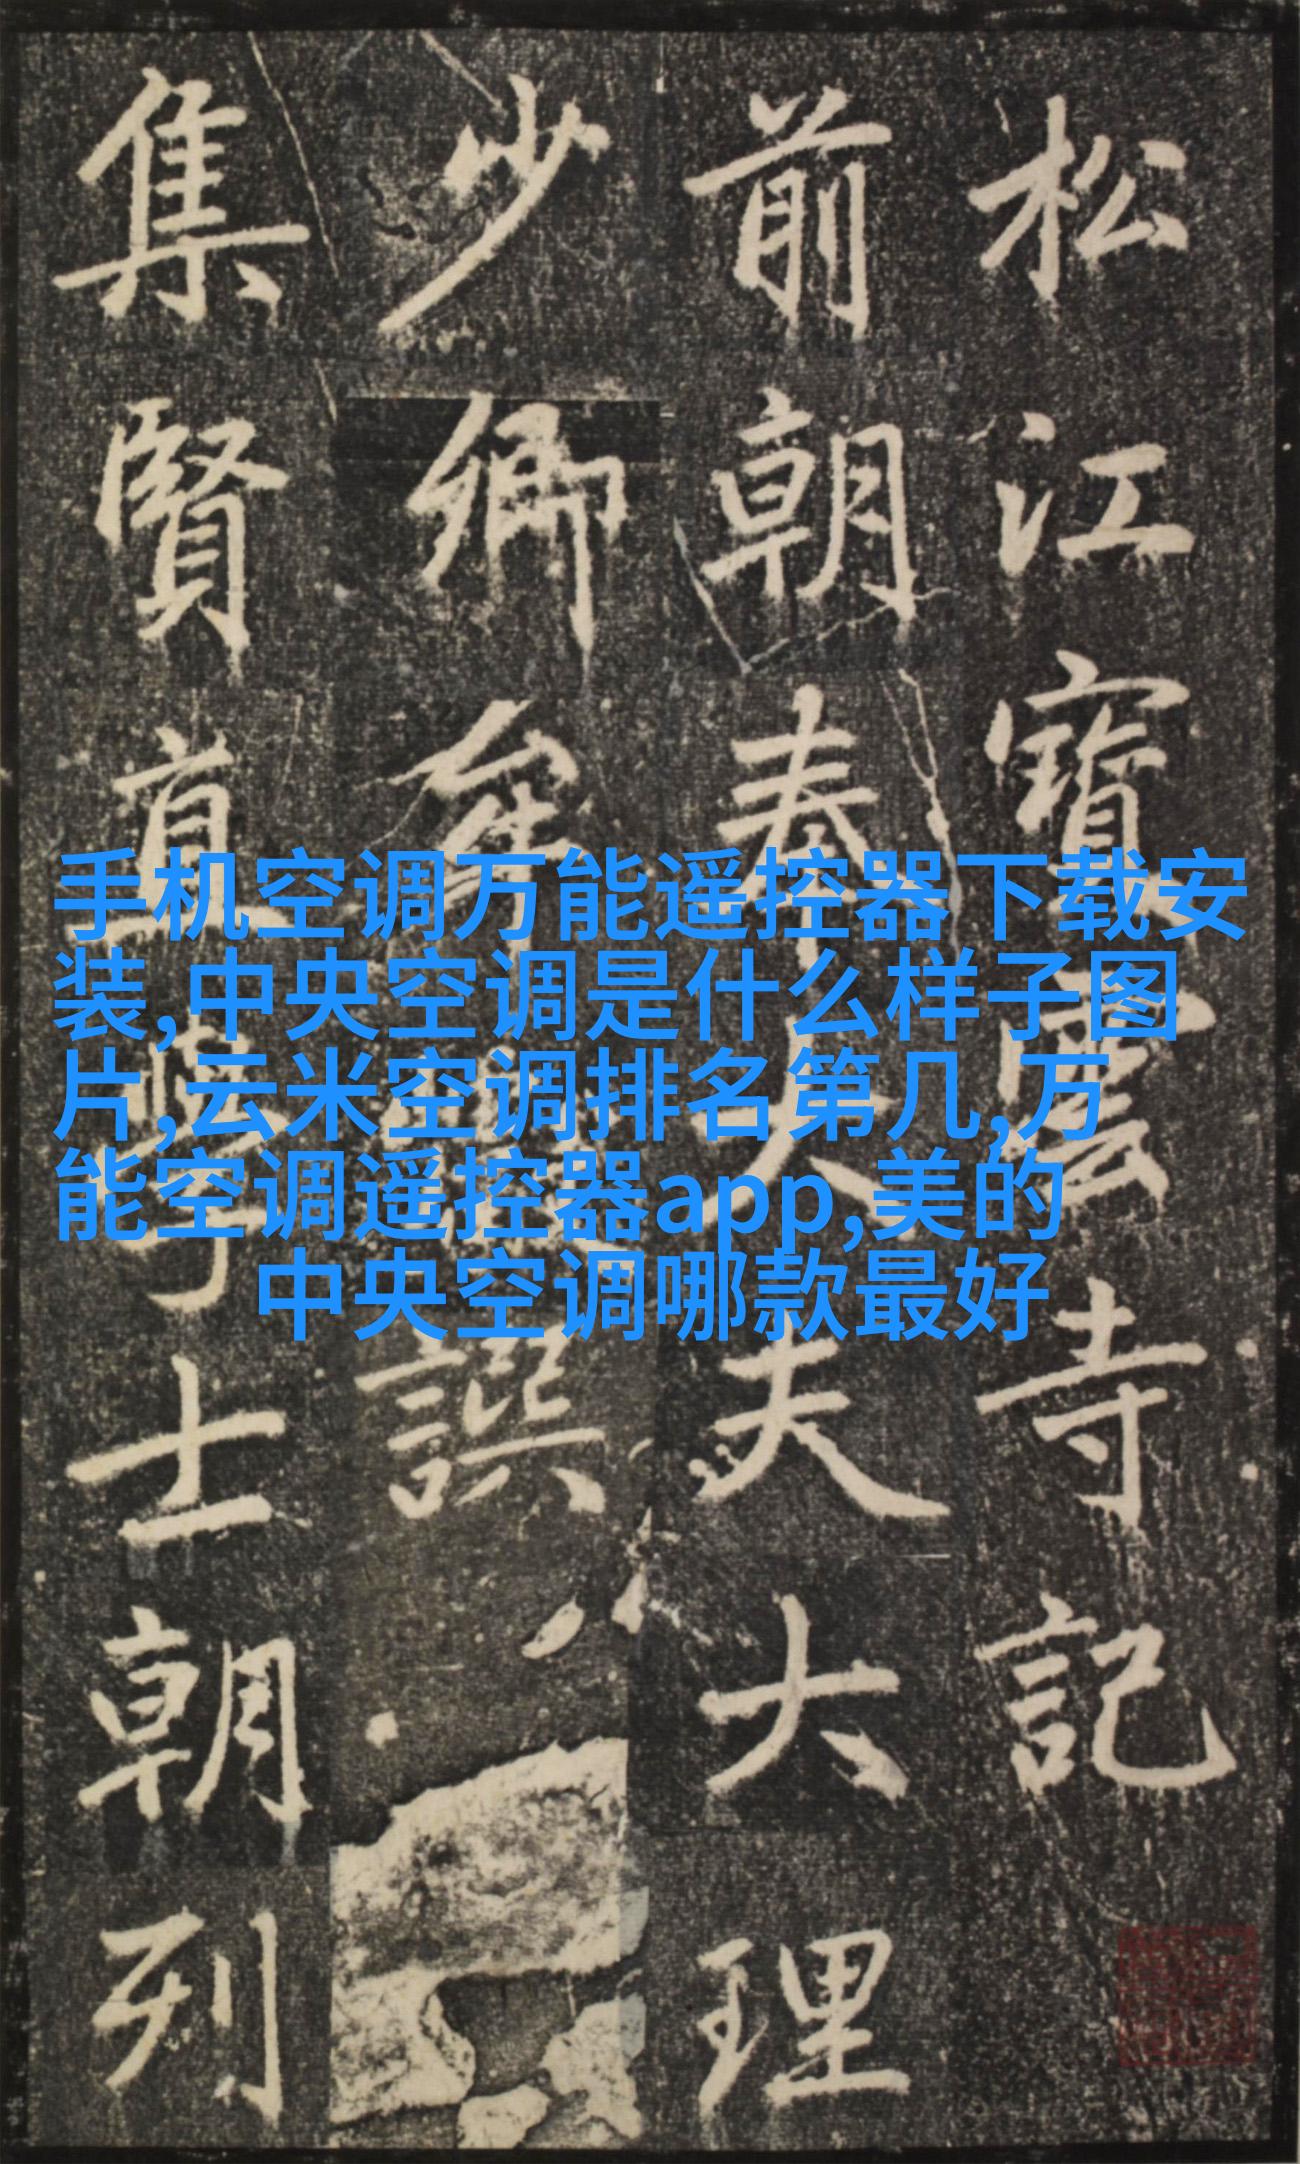 松江寶雲寺記
前朝奉大夫大理
少卿牟譔
集賢直學士朝列
手机空调万能遥控器下载安
装,中央空调是什么样子图
片,云米空调排名第几,万
能空调遥控器app,美的
中央空调哪款最好